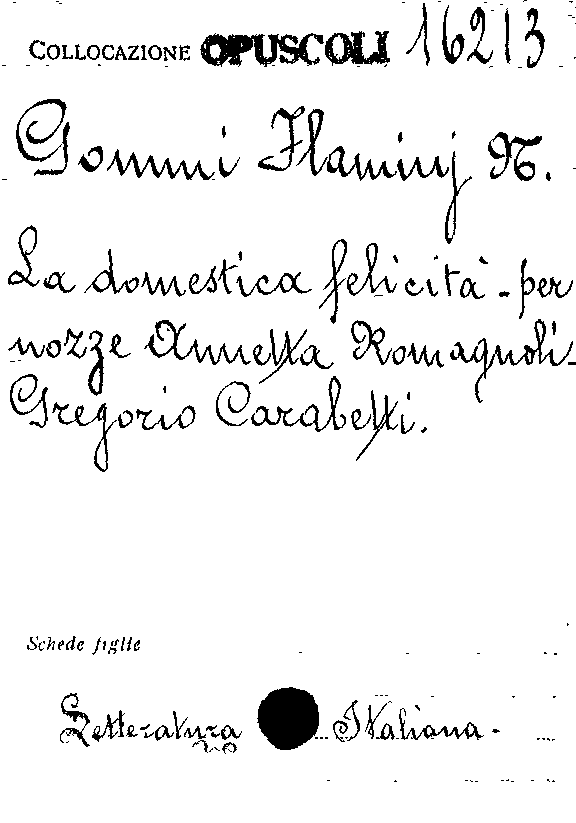 COLLOCAZIONE OPUSCOLI 16213
Gommi Flaminj N.
La domestica felicità - per
nozze Annetta Romagnoli-
Gregorio Carabetti.
Schede figlie
Letteratura Italiana.